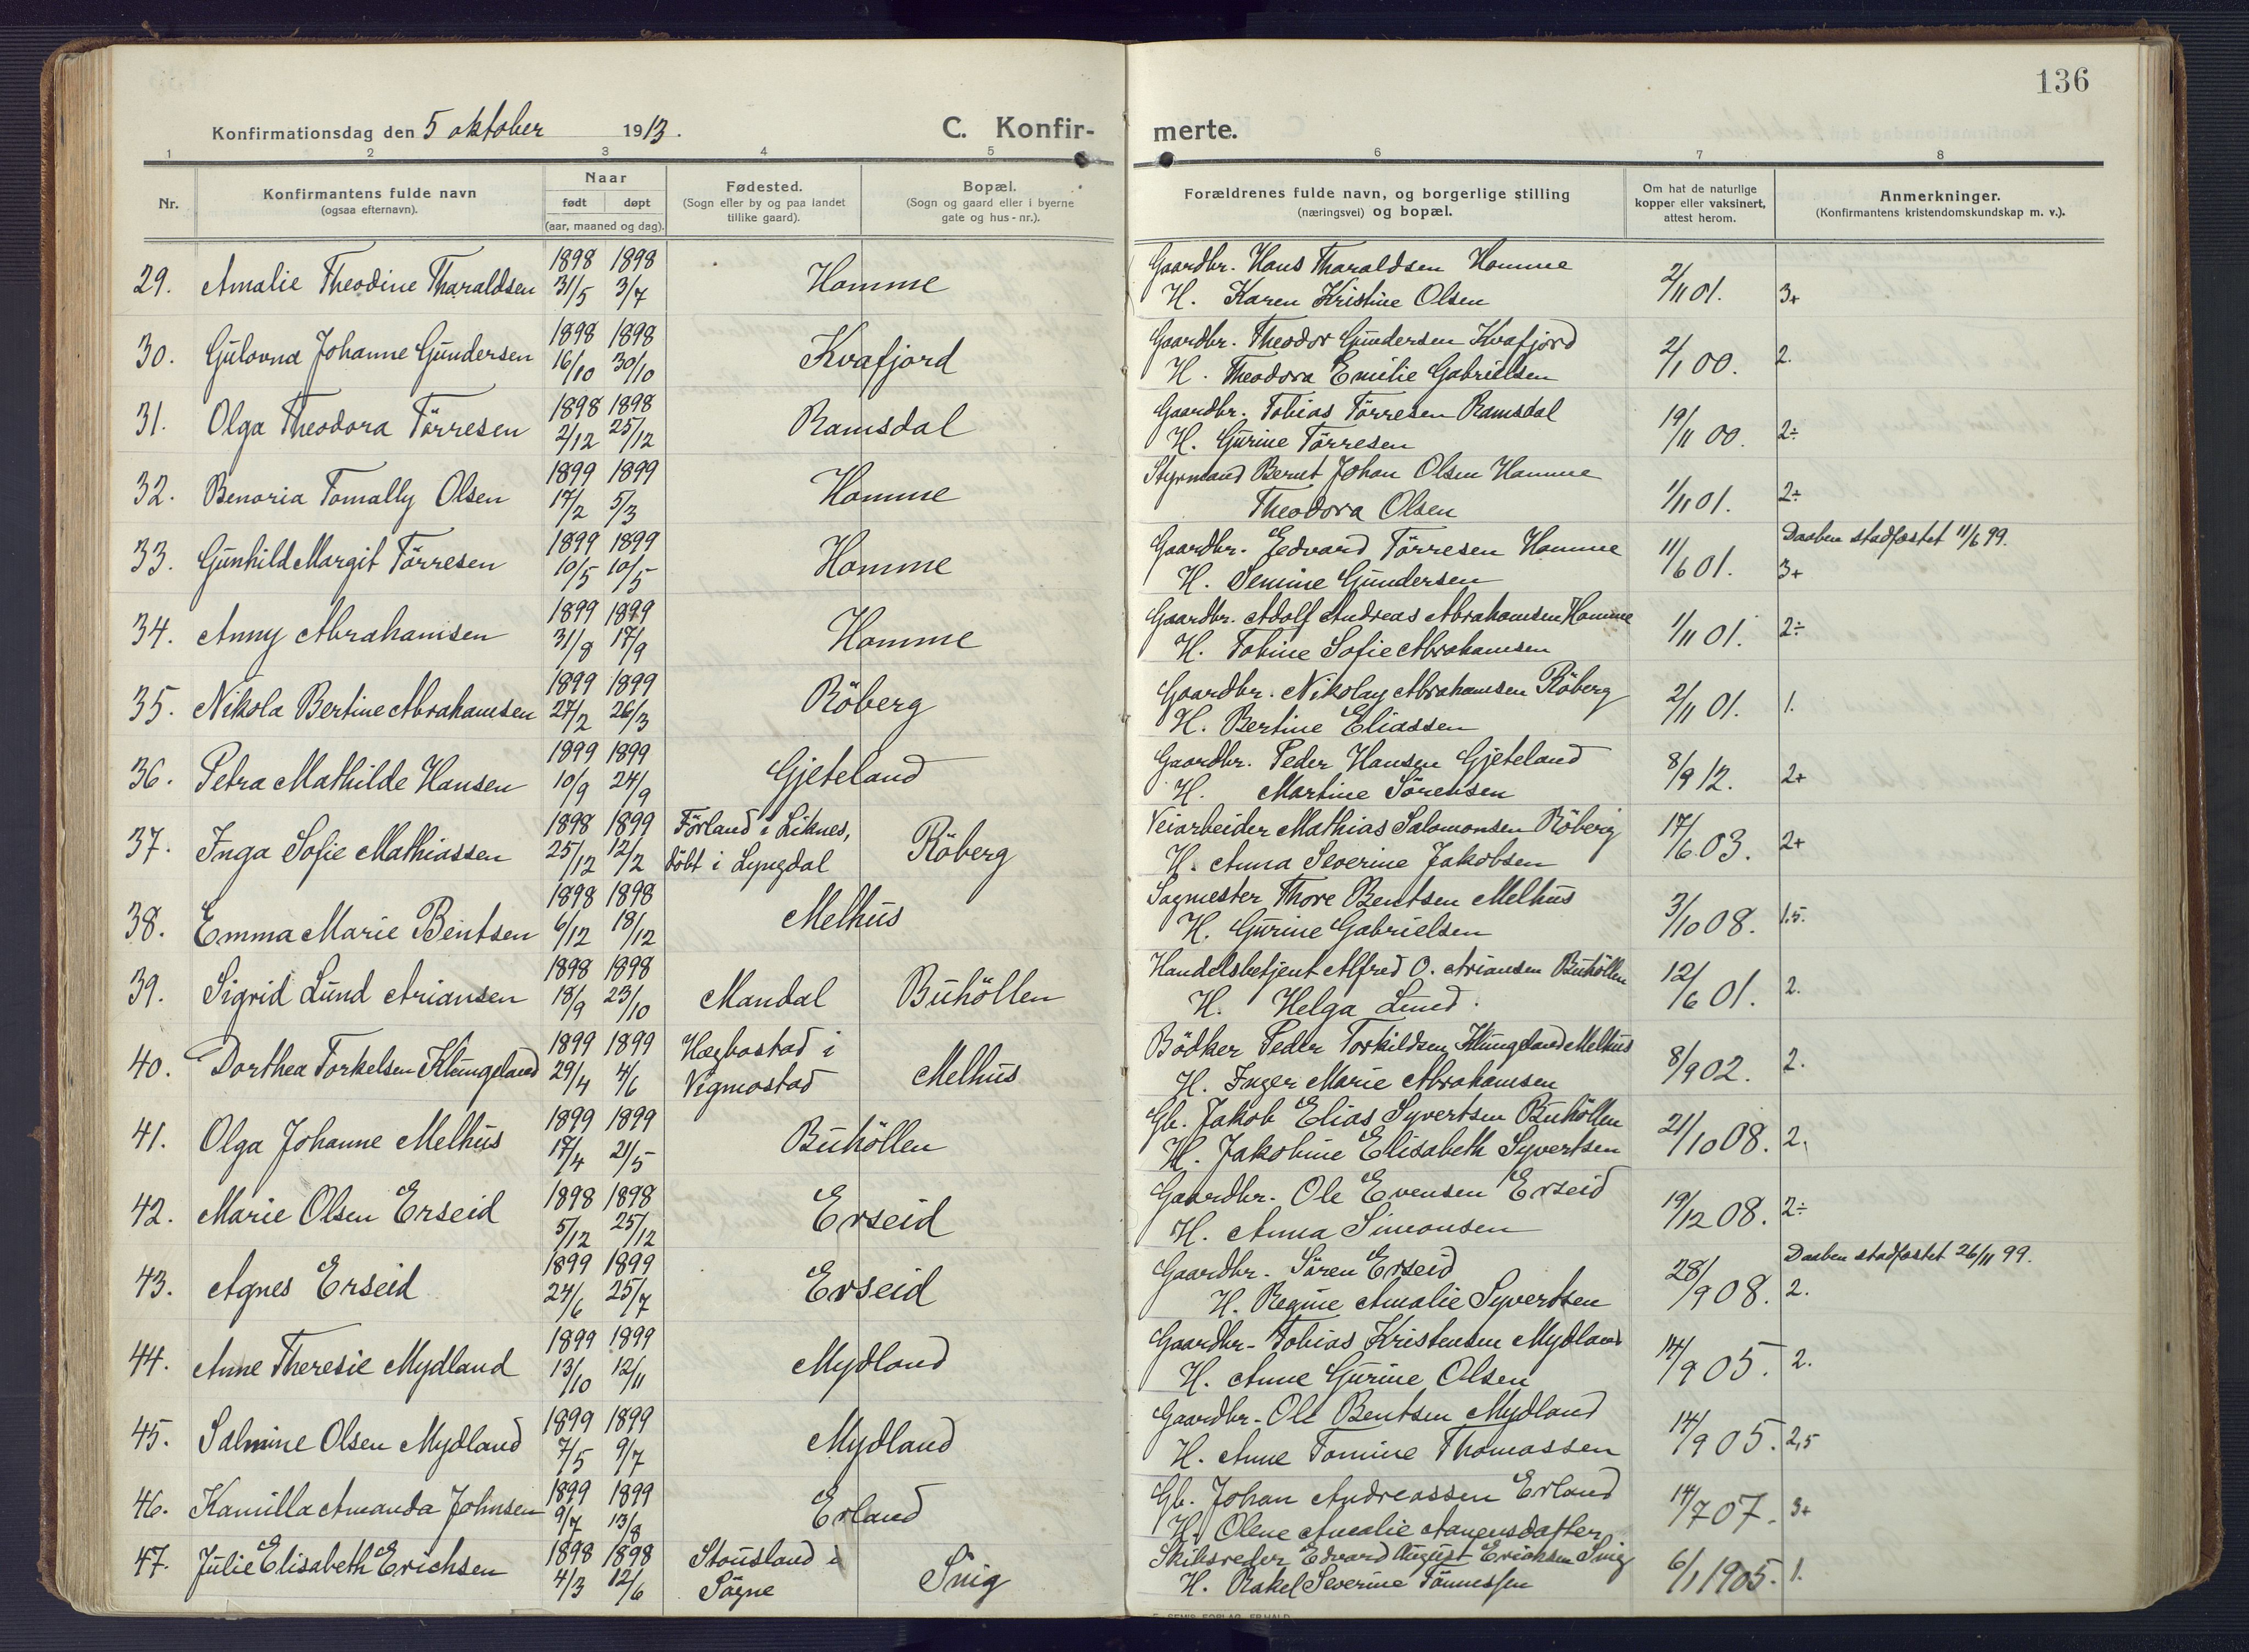 136
Konfirmationsdag den 5 oktober 1913.
C. Konfir- merte.
1 2 3 4 5 6 7 8
Nr.
Konfirmantens fulde navn
(ogsaa efternavn).
Naar
født døpt
(aar, maaned og dag).
Fødested.
(Sogn eller by og paa landet
tillike gaard).
Bopæl.
(Sogn og gaard eller i byerne
gate og hus-nr.).
Forældrenes fulde navn, og borgerlige stilling
(næringsvei) og bopæl.
Om hat de naturlige
kopper eller vaksinert,
attest herom.
Anmerkninger.
(Konfirmantens kristendomskundskap m. v.).
1898 1898 Gaardbr. Hans Tharaldsen Homme
29. Amalie Theodine Tharaldsen 31/5 3/7 Homme H. Karen Kristine Olsen 2/11 01. 3+
1898 1898 Gaardbr. Theodor Gundersen Kvafjord
30. Gulovna Johanne Gundersen 16/10 30/10 Kvafjord H. Theodora Emilie Gabrielsen 2/1 00. 2.
1898 1898 Gaardbr. Tobias Törresen Ramsdal
31. Olga Theodora Törresen 2/12 25/12 Ramsdal H. Gurine Törresen 19/11 00. 2÷
1899 1899 Styrmand Bernt Johan Olsen Homme
32. Benoria Tomally Olsen 17/2 5/3 Homme Theodora Olsen 1/11 01. 2÷
1899 1899 Gaardbr. Jedvard Törresen Homme Daaben stadfæstet 11/6 99.
33. Gunhild Margit Törresen 10/5 10/5 Homme H. Semine Gundersen 11/6 01. 3+
1899 1899 Gaardbr. Adolf Andreas Abrahamsen Homme
34. Anny Abrahamsen 31/8 17/9 Homme H. Tobine Sofie Abrahamsen 1/11 01. 2÷
1899 1899 Gaardbr. Nikolay Abrahamsen Röberg
35. Nikola Bertine Abrahamsen 27/2 26/3 Röberg H. Bertine Eliassen 2/11 01. 1.
1899 1899 Gaardbr. Peder Hansen Gjeteland
36. Petra Mathilde Hansen 10/9 24/9 Gjeteland H. Martine Sörensen 8/9 12. 2+
1898 1899 Förland i Liknes, Veiarbeider Mathias Salomonsen Röberg
37. Inga Sofie Mathiassen 25/12 12/2 döbt i Lyngdal Röberg H. Anna Severine Jakobsen 17/6 03. 2+
1898 1898 Sagmester Thore Bentsen Melhus
38. Emma Marie Bentsen 6/12 18/12 Melhus H. Gurine Gabrielsen 3/10 08. 1.5.
1898 1898 Handelsbetjent Alfred O. Ariansen Buhöllen
39. Sigrid Lund Ariansen 18/9 23/10 Mandal Buhöllen H. Helga Lund. 12/6 01. 2.
1899 1899 Hægbostad i Bödker Peder Torkildsen Klungeland Melhus
40. Dorthea Torkelsen Klungeland 29/4 4/6 Vigmostad Melhus H. Inger Marie Abrahamsen 8/9 02. 2.
1899 1899 Gb. Jakob Elias Syvertsen Buhöllen
41. Olga Johanne Melhus 17/4 21/5 Buhöllen H. Jakobine Elisabeth Syvertsen 21/10 08. 2.
1898 1898 Gaardbr. Ole Evensen Erseid
42. Marie Olsen Erseid 5/12 25/12 Erseid H. Anna Simonsen 19/12 08. 2÷
1899 1899 Gaardbr. Sören Erseid Daaben stadfæstet 26/11 99.
43. Agnes Erseid 24/6 25/7 Erseid H. Regine Amalie Syvertsen 28/9 08. 2.
1899 1899 Gaardbr. Tobias Kristensen Mydland
44. Anne Theresie Mydland 13/10 12/11 Mydland H. Anne Gurine Olsen 14/9 05. 2.
1899 1899 Gaardbr. Ole Bentsen Mydland
45. Salmine Olsen Mydland 7/5 9/7 Mydland H. Anne Tomine Thomassen 14/9 05. 2,5
1899 1899 Gb. Johan Andreassen Erland
46. Kamilla Amanda Johnsen 9/7 13/8 Erland H. Olene Amalie Aanensdatter 14/7 07. 3+
1898 1898 Stousland i Skibsreder Edvard August Erichsen Snig
47. Julie Elisabeth Erichsen 4/3 12/6 Sögne Snig H. Rakel Severine Tönnessen 6/1 1905. 1.